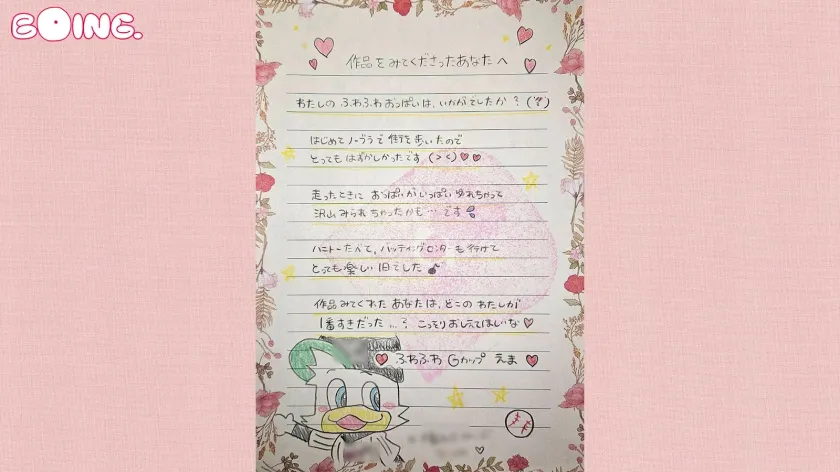 BOING.
作品をみてくださったあなたへ
わたしの ふわふわおっぱいは、いかがでしたか？
はじめてノーブラで街を歩いたので
とってもはずかしかったです (><)
走ったときに おっぱいがいっぱいゆれちゃって
沢山みられちゃったかも…です
ハニトーたべて、バッティングセンターも行けて
とっても楽しい1日でした
作品みてくれた あなたは、どこの わたしが
1番すきだった…？ こっそりおしえてほしいな
ふわふわ Gカップ えま